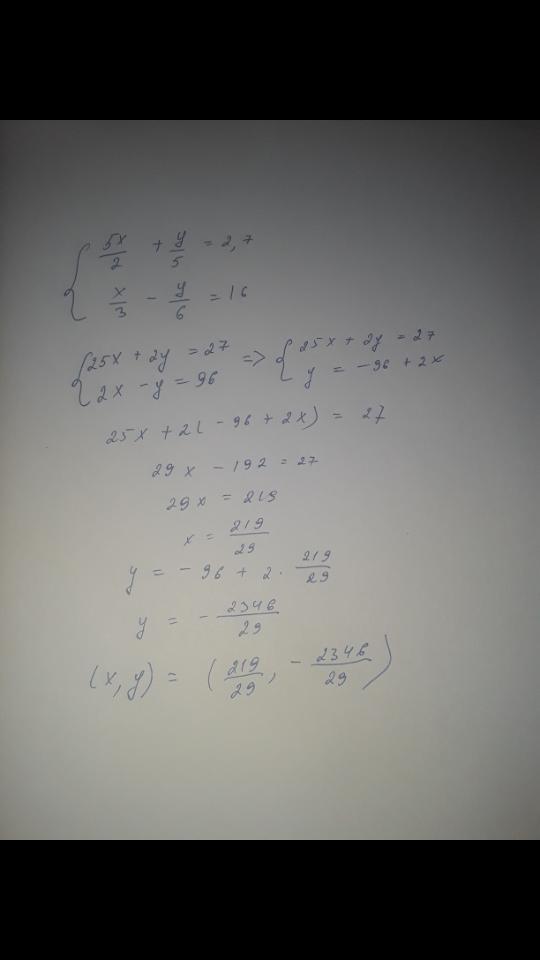 { 5x/2 + y/5 = 2,7
x/3 - y/6 = 16
{ 25x + 2y = 27 => { 25x + 2y = 27
2x - y = 96 y = -96 + 2x
25x + 2(-96 + 2x) = 27
29x - 192 = 27
29x = 219
x = 219/29
y = -96 + 2 · 219/29
y = - 2346/29
(x, y) = (219/29, - 2346/29)